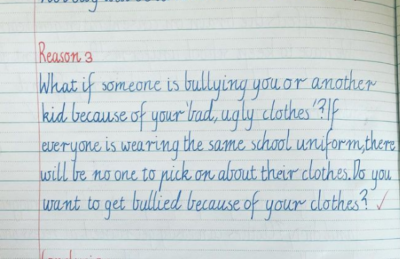 Reason 3
What if someone is bullying you or another
kid because of your 'bad, ugly clothes'? If
everyone is wearing the same school uniform, there
will be no one to pick on about their clothes. Do you
want to get bullied because of your clothes? ✓